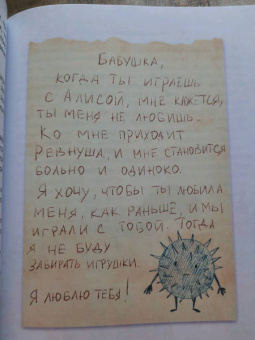 Бабушка,
когда ты играешь
с Алисой, мне кажется,
ты меня не любишь.
Ко мне приходит
Ревнуша, и мне становится
больно и одиноко.
Я хочу, чтобы ты любила
меня, как раньше, и мы
играли с тобой. Тогда
я не буду
забирать игрушки.
Я люблю тебя!